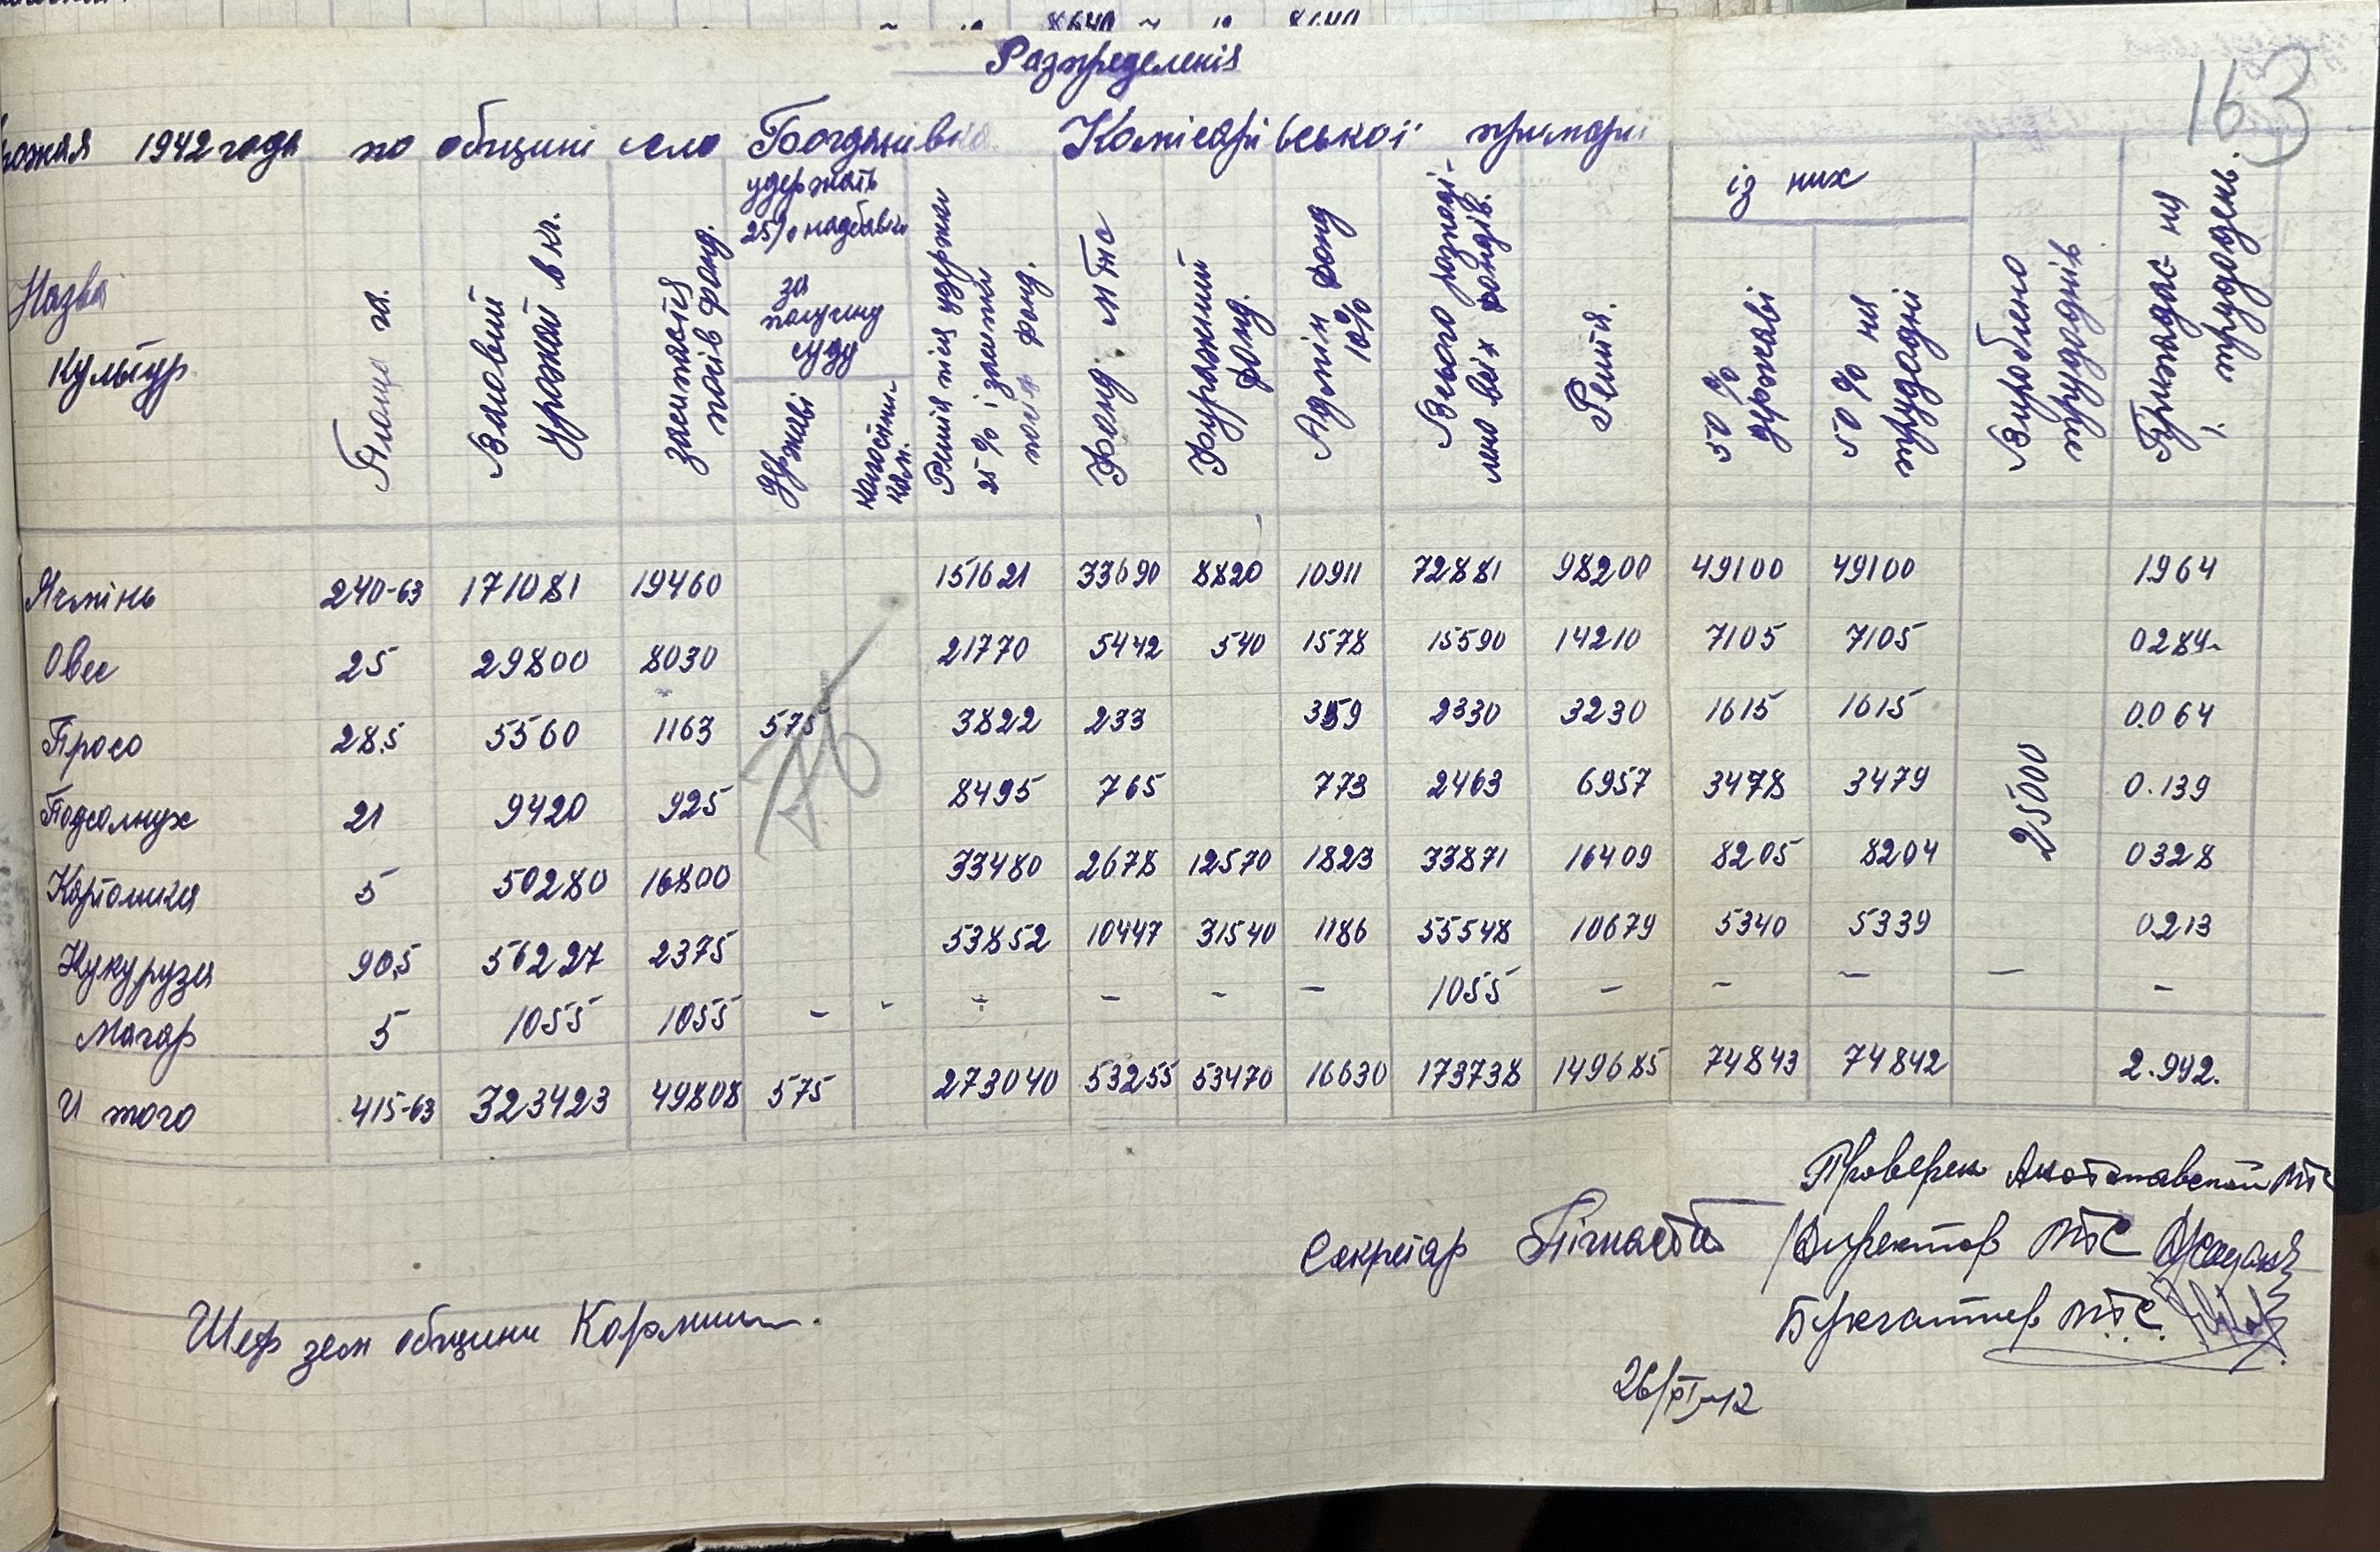 Разпределенія
163
рожая 1942 года по общині село Богданівка Комісарівської примарії
Назва культур
Площа га.
Валовий урожай в кг.
засипаться посів фонд.
удержать 25% надбавки за получену суду
державі
колгоспам.
Решта після удержки 25% і засипки посів фонд.
Фонд МТС
Фуражний фонд.
Адмін фонд 10%
Всього розподілено всіх фондів.
Решта.
із них
50% державі
50% на трудодні
Вироблено трудоднів
Припадає на 1. трудодень.
Ячмінь 240-63 171081 19460 151621 33690 8820 10911 72881 98200 49100 49100 1964
Овес 25 29800 8030 21770 5442 540 1578 15590 14210 7105 7105 0284
Просо 28.5 5560 1163 575 3822 233 359 2330 3230 1615 1615 0.064
Подсолнух 21 9420 925 8495 765 773 2463 6957 3478 3479 0.139
25000
Картошка 5 50280 16800 33480 2678 12570 1823 33871 16409 8205 8204 0328
Кукуруза 90,5 56227 2375 53852 10447 31540 1186 55548 10679 5340 5339 0213
Могар 5 1055 1055 - - - - - - 1055 - - - - -
И того 415-63 323423 49808 575 273040 53255 53470 16630 173738 149685 74843 74842 2.992.
Проверен МТС
Секретар
Директор МТС
Шеф зем общини
Бухгалтер МТС
26/XI-42